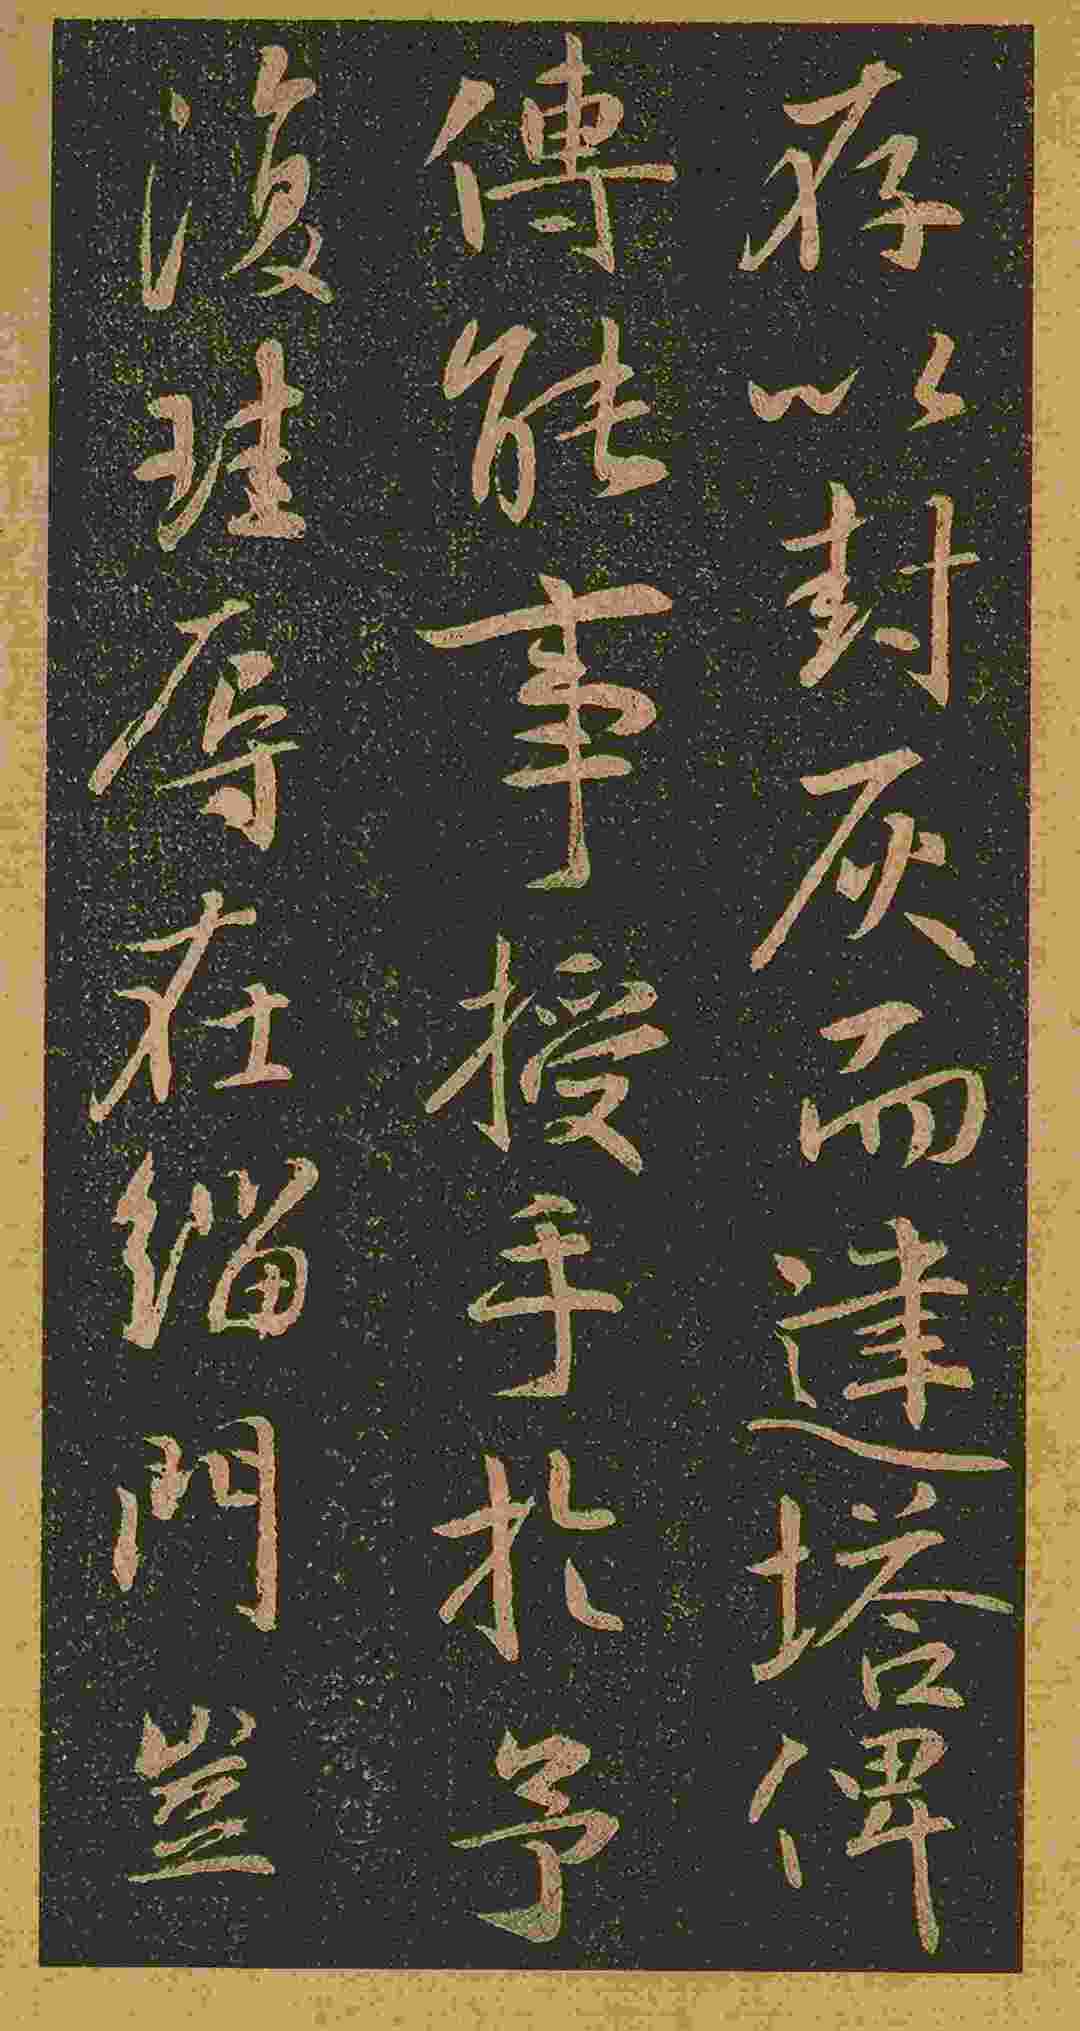 存以封灰而建塔俾
傳能事授手扵予
復珪辱在緇門豈